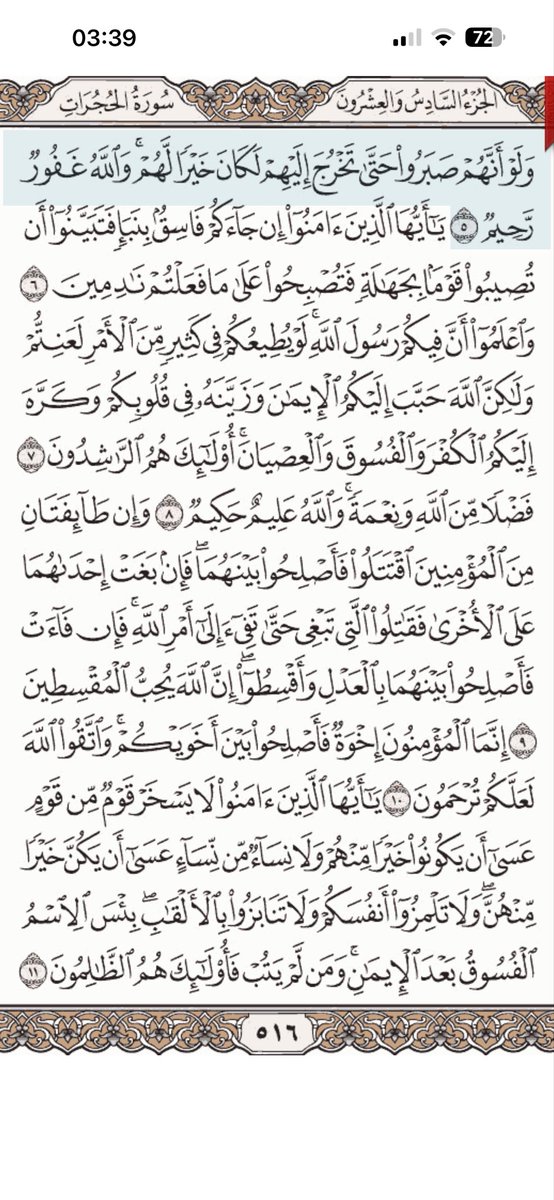 03:39 72
الجُزْءُ السَّادِسُ وَالعِشْرُونَ سُورَةُ الحُجُرَاتِ
وَلَوْ أَنَّهُمْ صَبَرُوا۟ حَتَّىٰ تَخْرُجَ إِلَيْهِمْ لَكَانَ خَيْرًا لَّهُمْ ۚ وَٱللَّهُ غَفُورٌ
رَّحِيمٌ ٥ يَـٰٓأَيُّهَا ٱلَّذِينَ ءَامَنُوٓا۟ إِن جَآءَكُمْ فَاسِقٌۢ بِنَبَإٍ فَتَبَيَّنُوٓا۟ أَن
تُصِيبُوا۟ قَوْمًۢا بِجَهَـٰلَةٍ فَتُصْبِحُوا۟ عَلَىٰ مَا فَعَلْتُمْ نَـٰدِمِينَ ٦
وَٱعْلَمُوٓا۟ أَنَّ فِيكُمْ رَسُولَ ٱللَّهِ ۚ لَوْ يُطِيعُكُمْ فِى كَثِيرٍ مِّنَ ٱلْأَمْرِ لَعَنِتُّمْ
وَلَـٰكِنَّ ٱللَّهَ حَبَّبَ إِلَيْكُمُ ٱلْإِيمَـٰنَ وَزَيَّنَهُۥ فِى قُلُوبِكُمْ وَكَرَّهَ
إِلَيْكُمُ ٱلْكُفْرَ وَٱلْفُسُوقَ وَٱلْعِصْيَانَ ۚ أُو۟لَـٰٓئِكَ هُمُ ٱلرَّٰشِدُونَ ٧
فَضْلًا مِّنَ ٱللَّهِ وَنِعْمَةً ۚ وَٱللَّهُ عَلِيمٌ حَكِيمٌ ٨ وَإِن طَآئِفَتَانِ
مِنَ ٱلْمُؤْمِنِينَ ٱقْتَتَلُوا۟ فَأَصْلِحُوا۟ بَيْنَهُمَا ۖ فَإِنۢ بَغَتْ إِحْدَىٰهُمَا
عَلَى ٱلْأُخْرَىٰ فَقَـٰتِلُوا۟ ٱلَّتِى تَبْغِى حَتَّىٰ تَفِىٓءَ إِلَىٰٓ أَمْرِ ٱللَّهِ ۚ فَإِن فَآءَتْ
فَأَصْلِحُوا۟ بَيْنَهُمَا بِٱلْعَدْلِ وَأَقْسِطُوٓا۟ ۖ إِنَّ ٱللَّهَ يُحِبُّ ٱلْمُقْسِطِينَ
٩ إِنَّمَا ٱلْمُؤْمِنُونَ إِخْوَةٌ فَأَصْلِحُوا۟ بَيْنَ أَخَوَيْكُمْ ۚ وَٱتَّقُوا۟ ٱللَّهَ
لَعَلَّكُمْ تُرْحَمُونَ ١٠ يَـٰٓأَيُّهَا ٱلَّذِينَ ءَامَنُوا۟ لَا يَسْخَرْ قَوْمٌ مِّن قَوْمٍ
عَسَىٰٓ أَن يَكُونُوا۟ خَيْرًا مِّنْهُمْ وَلَا نِسَآءٌ مِّن نِّسَآءٍ عَسَىٰٓ أَن يَكُنَّ خَيْرًا
مِّنْهُنَّ ۖ وَلَا تَلْمِزُوٓا۟ أَنفُسَكُمْ وَلَا تَنَابَزُوا۟ بِٱلْأَلْقَـٰبِ ۖ بِئْسَ ٱلِٱسْمُ
ٱلْفُسُوقُ بَعْدَ ٱلْإِيمَـٰنِ ۚ وَمَن لَّمْ يَتُبْ فَأُو۟لَـٰٓئِكَ هُمُ ٱلظَّـٰلِمُونَ ١١
٥١٦